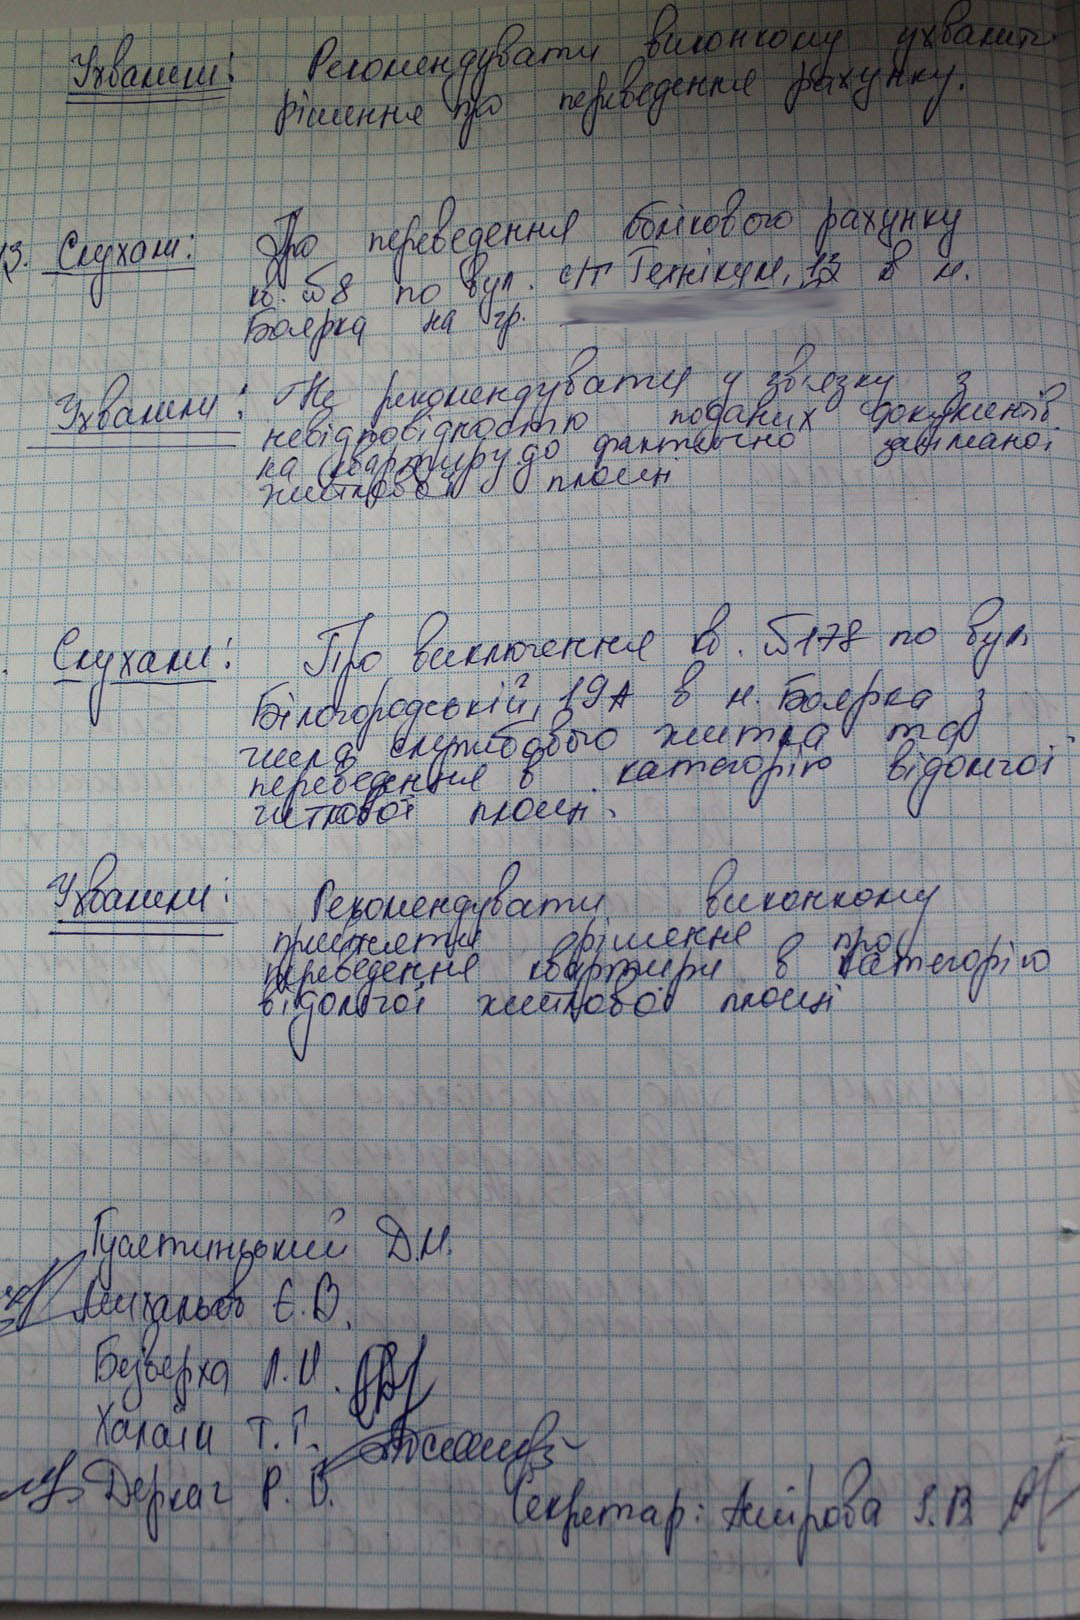 Ухвалили: Рекомендувати виконкому ухвалити
рішення про переведення рахунку.
13. Слухали: Про переведення облікового рахунку
кв. №8 по вул. с/т Технікум, 12 в м.
Боярка на гр.
Ухвалили: Не рекомендувати у зв'язку з
невідповідністю поданих документів
на квартиру до фактично займаної
житлової площі
Слухали: Про виключення кв. №178 по вул.
Білогородській, 19А в м. Боярка з
числа службового житла та
переведення в категорію відомчої
житлової площі.
Ухвалили: Рекомендувати виконкому
прийняти рішення про
переведення квартири в категорію
відомчої житлової площі
Гусятинський Д.М.
Михальов Є.В.
Безверха Л.И.
Т.Г.
Деркач Р.В.
Секретар: Амірова І.В